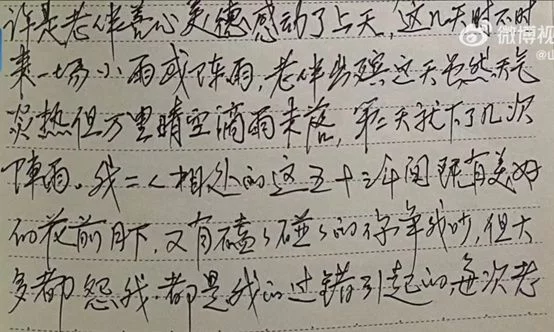 许是老伴善心美德感动了上天，这几天时不时
来一场小雨或阵雨，老伴出殡这天虽然天气
炎热但万里晴空滴雨未落，第二天就下了几次
阵雨。我二人相处的这五十三年间既有美好
的花前月下，又有磕々碰々的 争我吵，但大
多都怨我都是我的过错引起的，每次老
微博视
@山